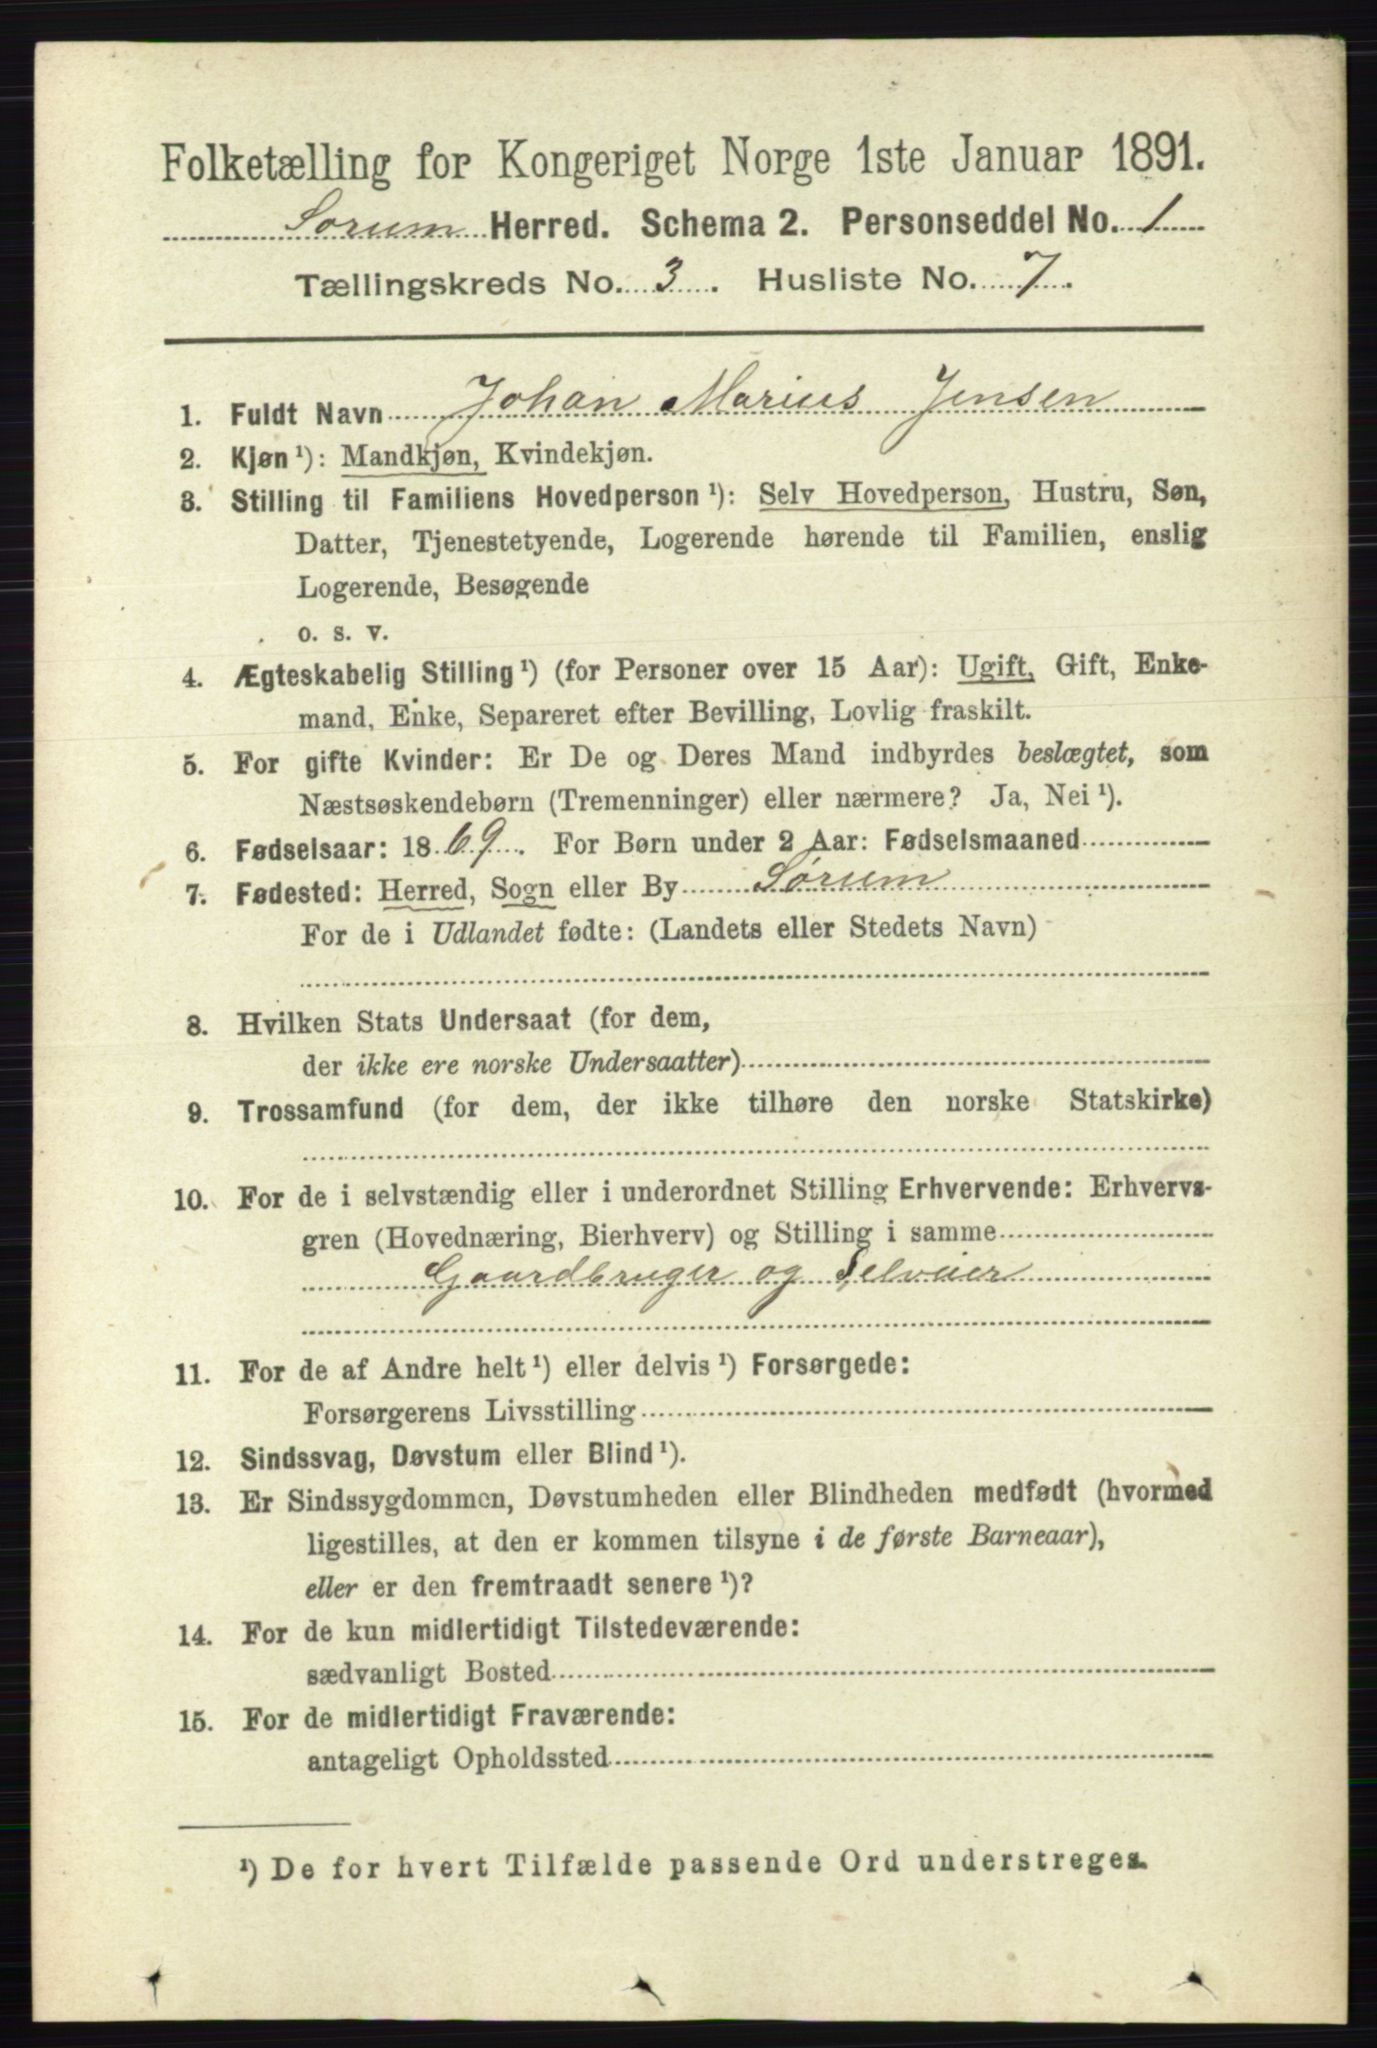 Folketælling for Kongeriget Norge 1ste Januar 1891.
Sorum Herred. Schema 2. Personseddel No. 1
Tællingskreds No. 3. Husliste No. 7.
1. Fuldt Navn Johan Marius Jensen
2. Kjøn ¹): Mandkjøn, Kvindekjøn.
3. Stilling til Familiens Hovedperson ¹): Selv Hovedperson, Hustru, Søn,
Datter, Tjenestetyende, Logerende hørende til Familien, enslig
Logerende, Besøgende
o. s. v.
4. Ægteskabelig Stilling ¹) (for Personer over 15 Aar): Ugift, Gift, Enke-
mand, Enke, Separeret efter Bevilling, Lovlig fraskilt.
5. For gifte Kvinder: Er De og Deres Mand indbyrdes beslægtet, som
Næstsøskendebørn (Tremenninger) eller nærmere? Ja, Nei ¹).
6. Fødselsaar: 1869. For Børn under 2 Aar: Fødselsmaaned
7. Fødested: Herred, Sogn eller By Sørum
For de i Udlandet fødte: (Landets eller Stedets Navn)
8. Hvilken Stats Undersaat (for dem,
der ikke ere norske Undersaatter)
9. Trossamfund (for dem, der ikke tilhøre den norske Statskirke)
10. For de i selvstændig eller i underordnet Stilling Erhvervende: Erhvervs-
gren (Hovednæring, Bierhverv) og Stilling i samme
Gaardbruger og Selveier
11. For de af Andre helt ¹) eller delvis ¹) Forsørgede:
Forsørgerens Livsstilling
12. Sindssvag, Døvstum eller Blind ¹).
13. Er Sindssygdommen, Døvstumheden eller Blindheden medfødt (hvormed
ligestilles, at den er kommen tilsyne i de første Barneaar),
eller er den fremtraadt senere ¹)?
14. For de kun midlertidigt Tilstedeværende:
sædvanligt Bosted
15. For de midlertidigt Fraværende:
antageligt Opholdssted
¹) De for hvert Tilfælde passende Ord understreges.